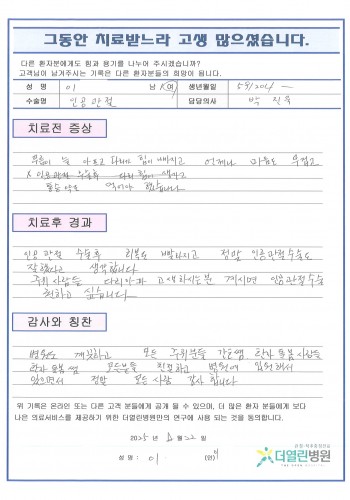 그동안 치료받느라 고생 많으셨습니다.
다른 환자분에게도 힘과 용기를 나누어 주시겠습니까?
고객님이 남겨주시는 기록은 다른 환자분들의 희망이 됩니다.
성 명 이 남/여 생년월일
수술명 인공관절 담당의사 박
치료전 증상
무릎이 늘 아프고 다리에 힘이 빠지고 언제나 마음도 무겁고
X 인공관절 수술후 다리 힘이 생기고
통증약도 먹어야 했습니다
치료후 경과
인공관절 수술후 회복도 빨라지고 정말 인공관절수술도
잘했다고 생각합니다
주위 사람들 다리아파 고생하시는분 계시면 인공관절수술
권하고 싶습니다
감사와 칭찬
병원도 깨끗하고 모든 주위분들 간호쌤
모든분들 친절하고 병원에 입원해서
있으면서 정말 모든 사람 감사합니다
위 기록은 온라인 또는 다른 고객 분들에게 공개 될 수 있으며, 더 많은 환자 분들에게 보다
나은 의료서비스를 제공하기 위한 더열린병원만의 연구에 사용 되는 것을 동의합니다.
2025 년 월 22 일
성 명 : 이 (인)
더열린병원